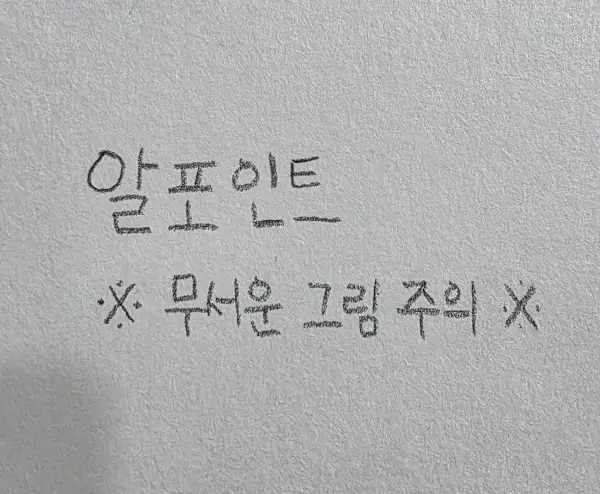 알포인트
※ 무서운 그림 주의 ※